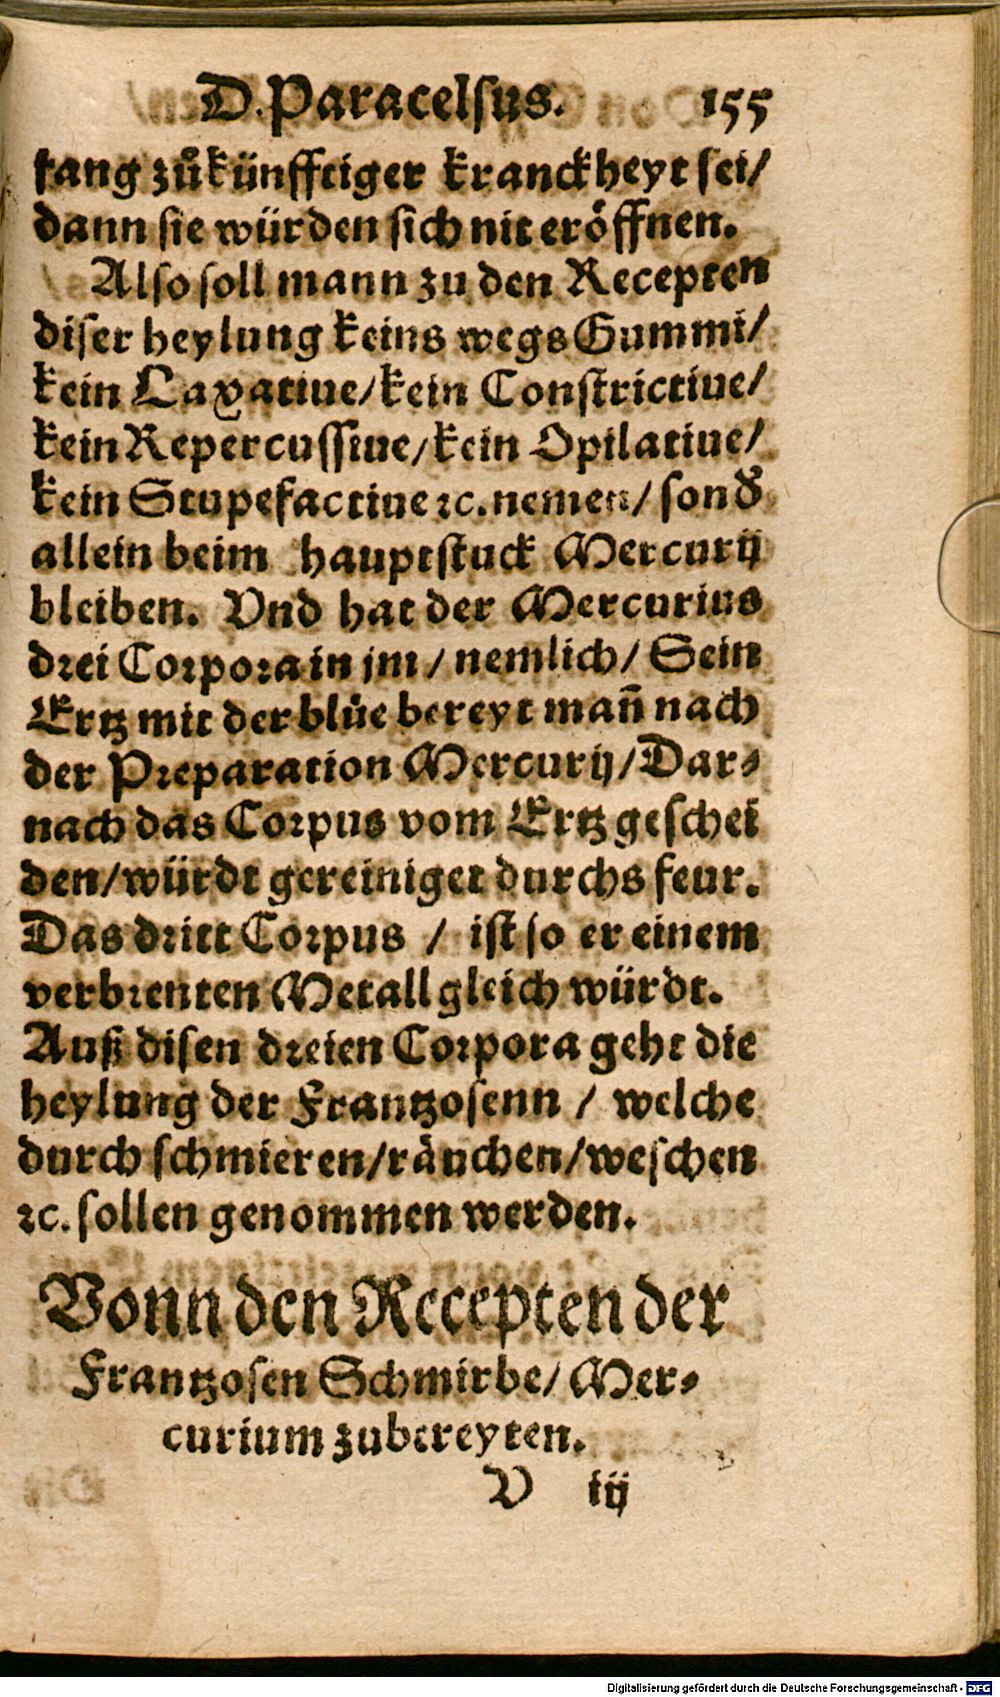 D. Paracelsus. 155
fang zůkünfftiger kranckheyt sei/
dann sie würden sich nit eröffnen.
Also soll mann zu den Recepten
diser heylung keins wegs Gummi/
kein Laxatiue/kein Constrictiue/
kein Repercussiue/kein Opilatiue/
kein Stupefactiue ꝛc. nemen/ sonđ
allein beim hauptstuck Mercurij
bleiben. Vnd hat der Mercurius
drei Corpora in jm/ nemlich/ Sein
Ertz mit der blüe bereyt man̄ nach
der Preparation Mercurij/Dar⸗
nach das Corpus vom Ertz geschei
den/würdt gereiniget durchs feur.
Das dritt Corpus / ist so er einem
verbrenten Metall gleich würdt.
Auß disen dreien Corpora geht die
heylung der Frantzosenn / welche
durch schmieren/räuchen/weschen
ꝛc. sollen genommen werden.
Vonn den Recepten der
Frantzosen Schmirbe/ Mer⸗
curium zubereyten.
V iij
Digitalisierung gefördert durch die Deutsche Forschungsgemeinschaft - DFG